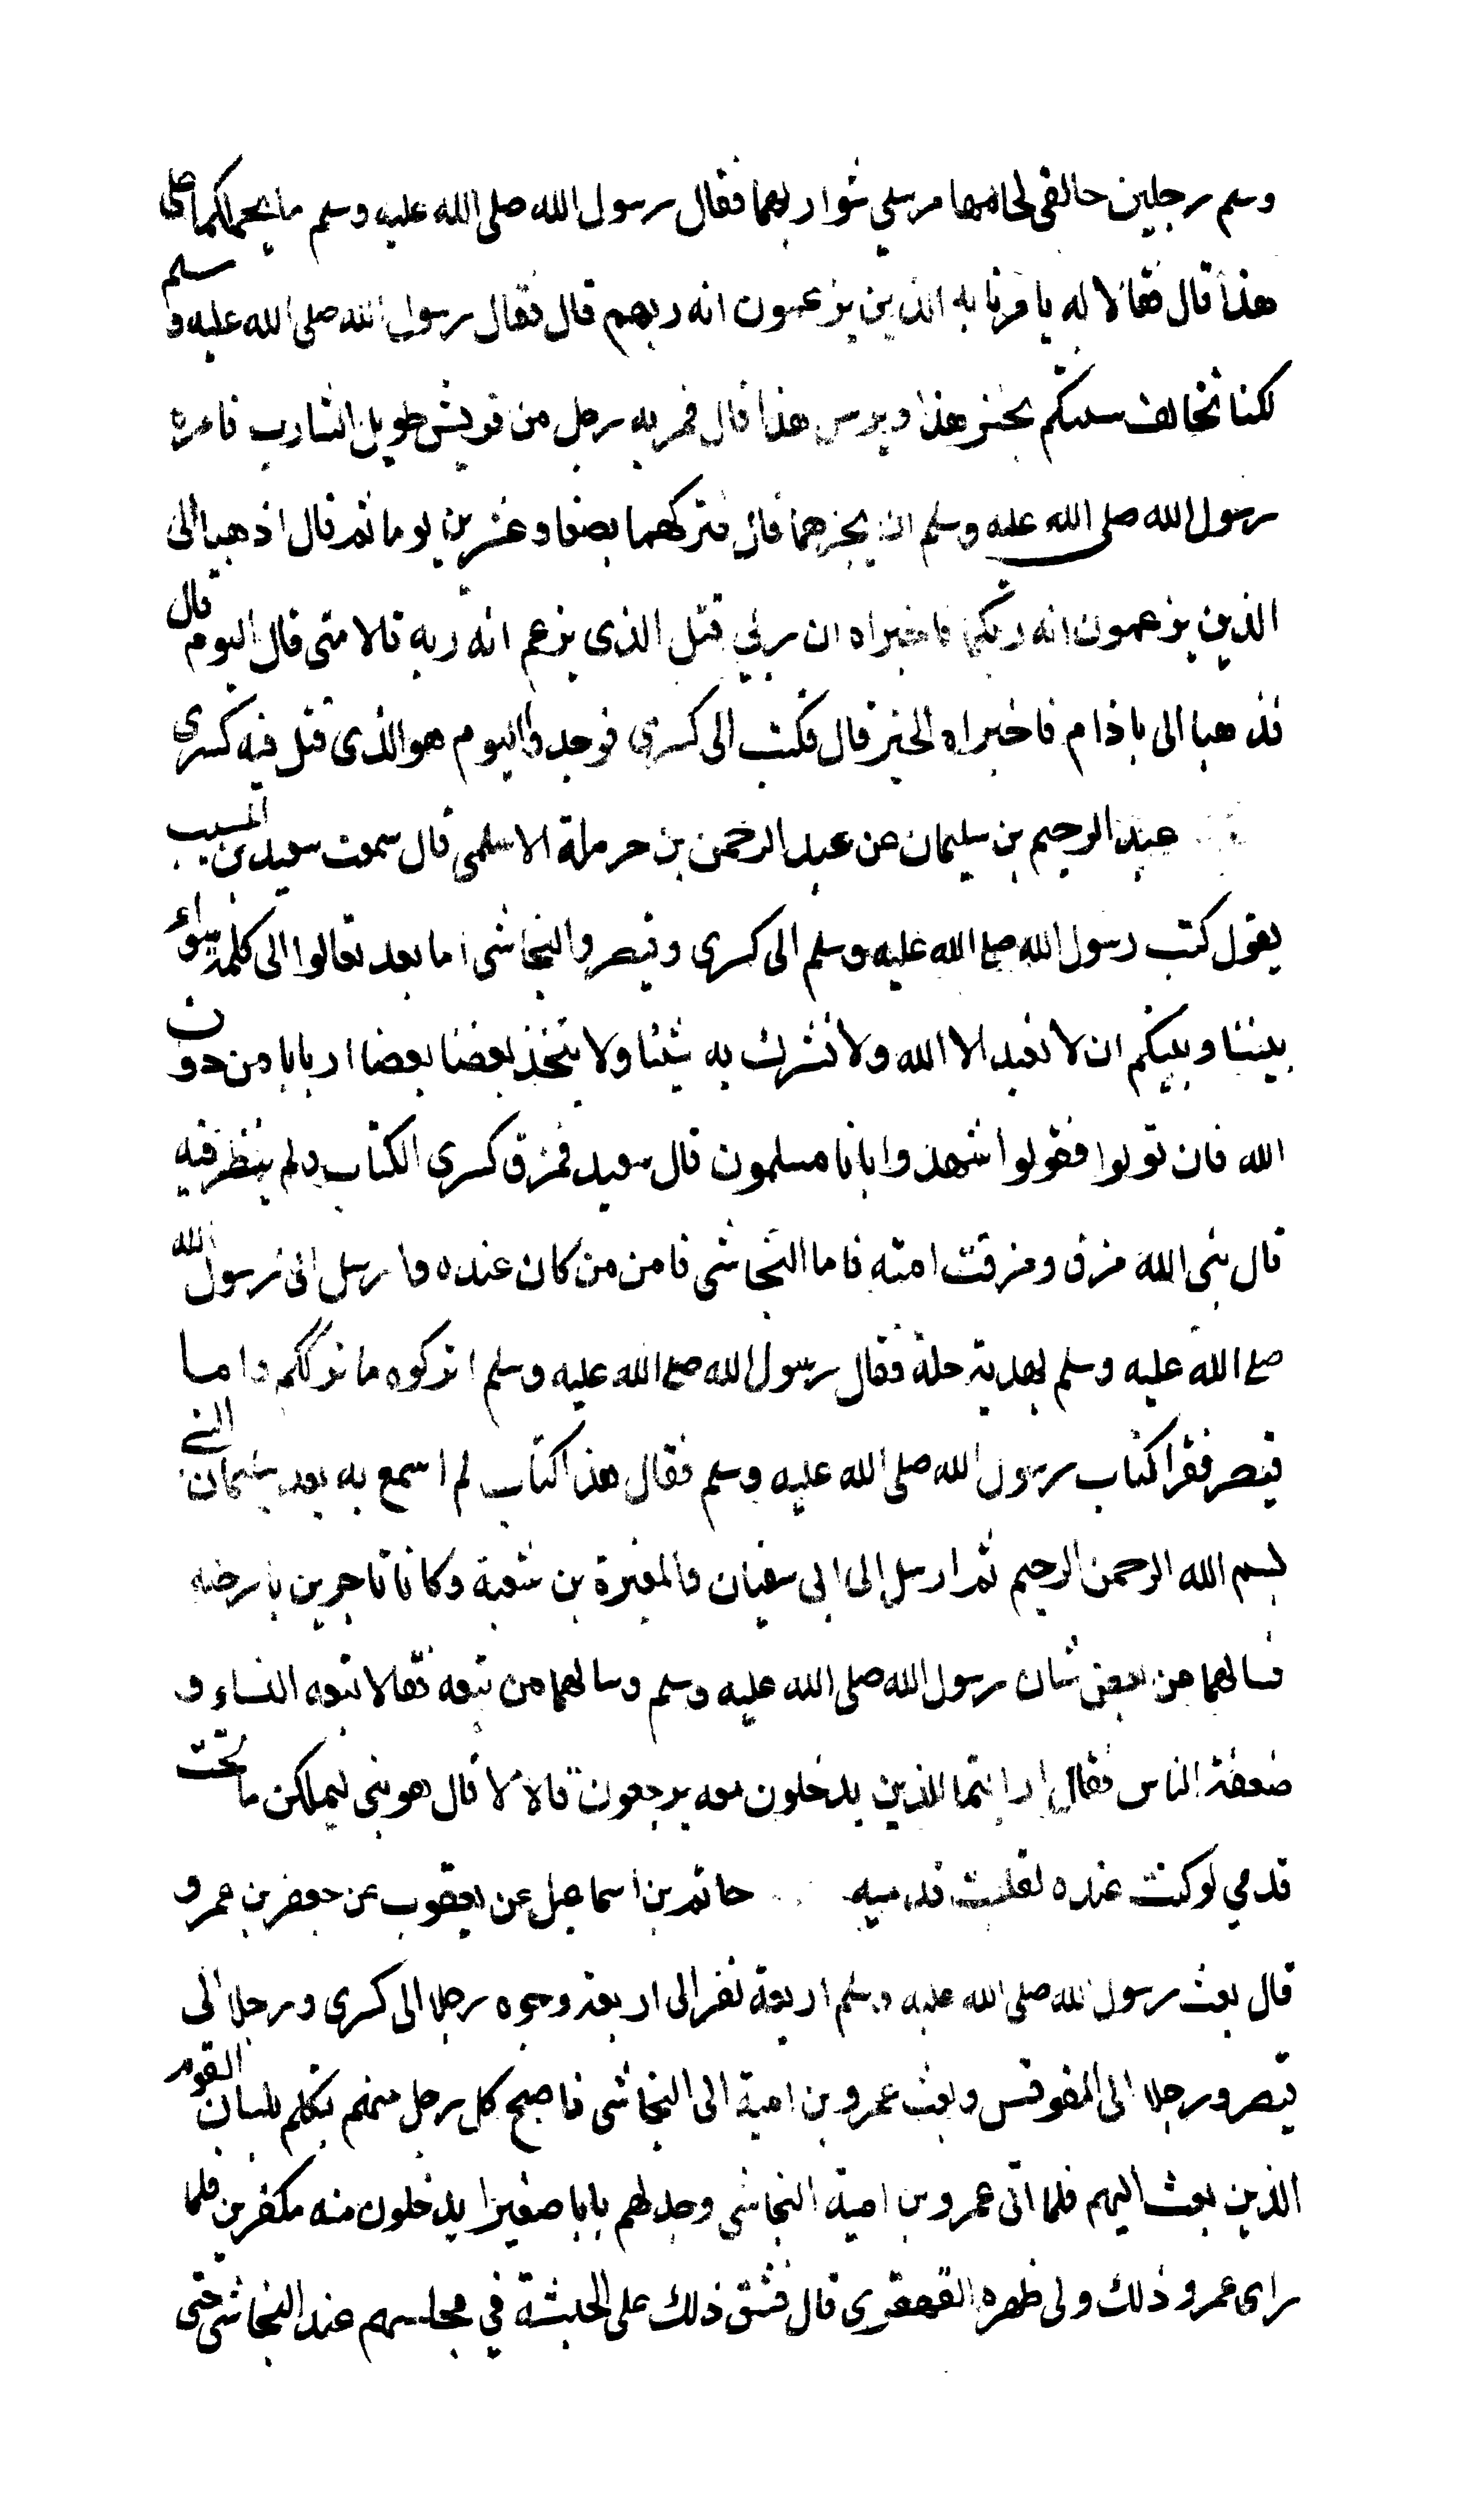 وسلم رجلين حالقي لحاهما مرسلي شواربهما فقال رسول الله صلى الله عليه وسلم ما يحملكما على
هذا قال فقالا له يامرنا به الذين يزعمون انه ربهم قال فقال رسول الله صلى الله عليه وسلم
لكنا نخالف سنتكم نجز هذا ونرسل هذا قال فمر به رجل من قريش طويل الشارب فامره
رسول الله صلى الله عليه وسلم ان يجزهما قال فتركهما بضعا وعشرين يوما ثم قال اذهبا الى
الذين يزعمون انه ربكما فاخبراه ان ربي قتل الذى يزعم انه ربه قالا متى قال اليوم قال
فذهبا الى باذام فاخبراه الخبر قال فكتب الى كسرى فوجدوا اليوم هو الذى قتل فيه كسرى
عبد الرحيم بن سليمان عن عبد الرحمن بن حرملة الاسلمى قال سمعت سعيد بن المسيب
يقول كتب رسول الله صلع الله عليه وسلم الى كسرى وقيصر والنجاشى اما بعد تعالوا الى كلمة سواء
بيننا وبينكم ان لا نعبد الا الله ولا نشرك به شيئا ولا يتخذ بعضنا بعضا اربابا من دون
الله فان تولوا فقولوا اشهدوا بانا مسلمون قال سعيد فمزق كسرى الكتاب ولم ينظر فيه
قال نبى الله مزق ومزقت امته فاما النجاشى فامن من كان عنده وارسل الى رسول الله
صلع الله عليه وسلم بهدية حلة فقال رسول الله صلع الله عليه وسلم اتركوه ما ترككم واما
قيصر فقرا كتاب رسول الله صلى الله عليه وسلم فقال هذا كتاب لم اسمع به بعد سليمان النبي
بسم الله الرحمن الرحيم ثم ارسل الى ابى سفيان والمغيرة بن شعبة وكانا تاجرين بارضه
فسالهما عن بعض شان رسول الله صلى الله عليه وسلم وسالهما من تبعه فقالا تبعه النساء و
ضعفة الناس فقال ارايتما الذين يدخلون معه يرجعون قالا لا قال هو نبى ليملكن ما تحت
قدمي لو كنت عنده لقبلت قدميه حاتم بن اسماعيل عن يعقوب عن جعفر بن عمرو
قال بعث رسول الله صلى الله عليه وسلم اربعة نفر الى اربعة وجوه رجلا الى كسرى ورجلا الى
قيصر ورجلا الى المقوقس وبعث عمرو بن امية الى النجاشى فاصبح كل رجل منهم يتكلم بلسان القوم
الذين بعث اليهم فلما اتى عمرو بن امية النجاشى وجد لهم بابا صغيرا يدخلون منه مكفرين فلما
راى عمرو ذلك ولى ظهره القهقرى قال فشق ذلك على الحبشة في مجلسهم عند النجاشى حتى